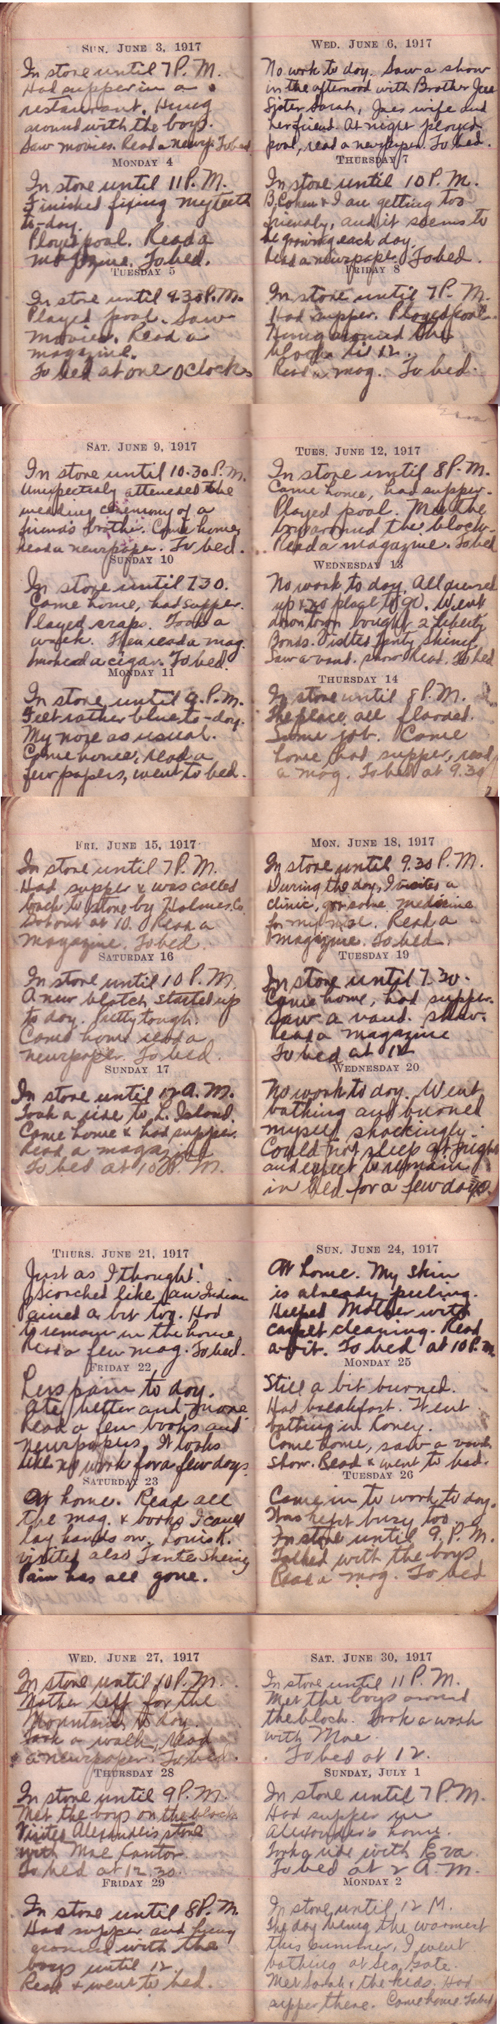 SUN. JUNE 3, 1917
In store until 7 P.M.
Had supper in a
restaurant. Hung
around with the boys.
Saw movies. Read a newsp. To bed
MONDAY 4
In store until 11 P.M.
Finished fixing my teeth
to-day.
Played pool. Read a
magazine. To bed.
TUESDAY 5
In store until 9.30 P.M.
Played pool. Saw
movies. Read a
magazine.
To bed at one O'clock
WED. JUNE 6, 1917
No work to day. Saw a show
in the afternoon with Brother Joe
Sister Sarah, Joes wife and
her friend. At night played
pool, read a newspaper. To bed.
THURSDAY 7
In store until 10 P.M.
B. Cohen & I am getting too
friendly, and it seems to
be growing each day.
Read a newspaper. To bed.
FRIDAY 8
In store until 7 P.M.
Had supper. Played pool.
Hung around the
block til 12.
Read a mag. To bed.
SAT. JUNE 9, 1917
In store until 10.30 P.M.
Unexpectedly attended the
wedding ceremony of a
friend's brother. Came home,
read a newspaper. To bed.
SUNDAY 10
In store until 7.30.
Came home, had supper.
Played craps. Took a
walk. Then read a mag.
Smoked a cigar. To bed.
MONDAY 11
In store until 9 P.M.
Feel rather blue to-day.
My nose as usual.
Came home, read a
few papers, went to bed.
TUES. JUNE 12, 1917
In store until 8 P.M.
Came home, had supper.
Played pool. Met the
boys around the block.
Read a magazine. To bed
WEDNESDAY 13
No work to day. All dressed
up & no place to go. Went
down town bought 2 Liberty
Bonds. Visited
Saw a vaud. show. Read. To bed
THURSDAY 14
In store until 8 P.M.
The place all flooded.
Some job. Came
home had supper, read
a mag. To bed at 9.30
FRI. JUNE 15, 1917
In store until 7 P.M.
Had supper & was called
back to store by Holmes Co.
Got out at 10. Read a
magazine. To bed.
SATURDAY 16
In store until 10 P.M.
A new blotch started up
to day. Pretty tough.
Came home read a
newspaper. To bed.
SUNDAY 17
In store until 12 A.M.
Took a ride to L. Island.
Came home & had supper.
Read a magazine
To bed at 10 P.M.
MON. JUNE 18, 1917
In store until 9.30 P.M.
During the day, I visited a
clinic, got some medicine
for my nose. Read a
magazine. To bed.
TUESDAY 19
In store until 7.30.
Came home, had supper.
Saw a vaud. show.
Read a magazine
To bed at 12
WEDNESDAY 20
No work to day. Went
bathing and burned
myself shockingly.
Could not sleep at night
and expect to remain
in bed for a few days.
THURS. JUNE 21, 1917
Just as I thought!
Scorched like an Indian
Pained a bit too. Had
to remain in the home
Read a few mag. To bed.
FRIDAY 22
Less pain to day.
Ate better and more
Read a few books and
newspapers. It looks
like no work for a few days.
SATURDAY 23
At home. Read all
the mag. & books I could
lay hands on. Louis K.
visited also Tante
Pain has all gone.
SUN. JUNE 24, 1917
At home. My skin
is already peeling.
Helped Mother with
carpet cleaning. Read
a bit. To bed at 10 P.M.
MONDAY 25
Still a bit burned.
Had breakfast. Went
bathing in Coney.
Came home, saw a vaud.
show. Read & went to bed.
TUESDAY 26
Came in to work to day.
Was kept busy too.
In store until 9 P.M.
Talked with the boys
Read a mag. To bed
WED. JUNE 27, 1917
In store until 10 P.M.
Mother left for the
Mountains to day.
Took a walk, read
a newspaper. To bed.
THURSDAY 28
In store until 9 P.M.
Met the boys on the block
Visited Alexander's store
with Mae Cantor
To bed at 12.30.
FRIDAY 29
In store until 8 P.M
Had supper and hung
around with the
boys until 12.
Read & went to bed.
SAT. JUNE 30, 1917
In store until 11 P.M.
Met the boys around
the block. Took a walk
with Mae.
To bed at 12.
SUNDAY, JULY 1
In store until 7 P.M.
Had supper in
Alexander's home.
Took a ride with Eva.
To bed at 2 A.M.
MONDAY 2
In store until 12 M.
The day being the warmest
this summer, I went
bathing at Sea Gate.
Met Sarah & the kids. Had
supper there. Came home To bed